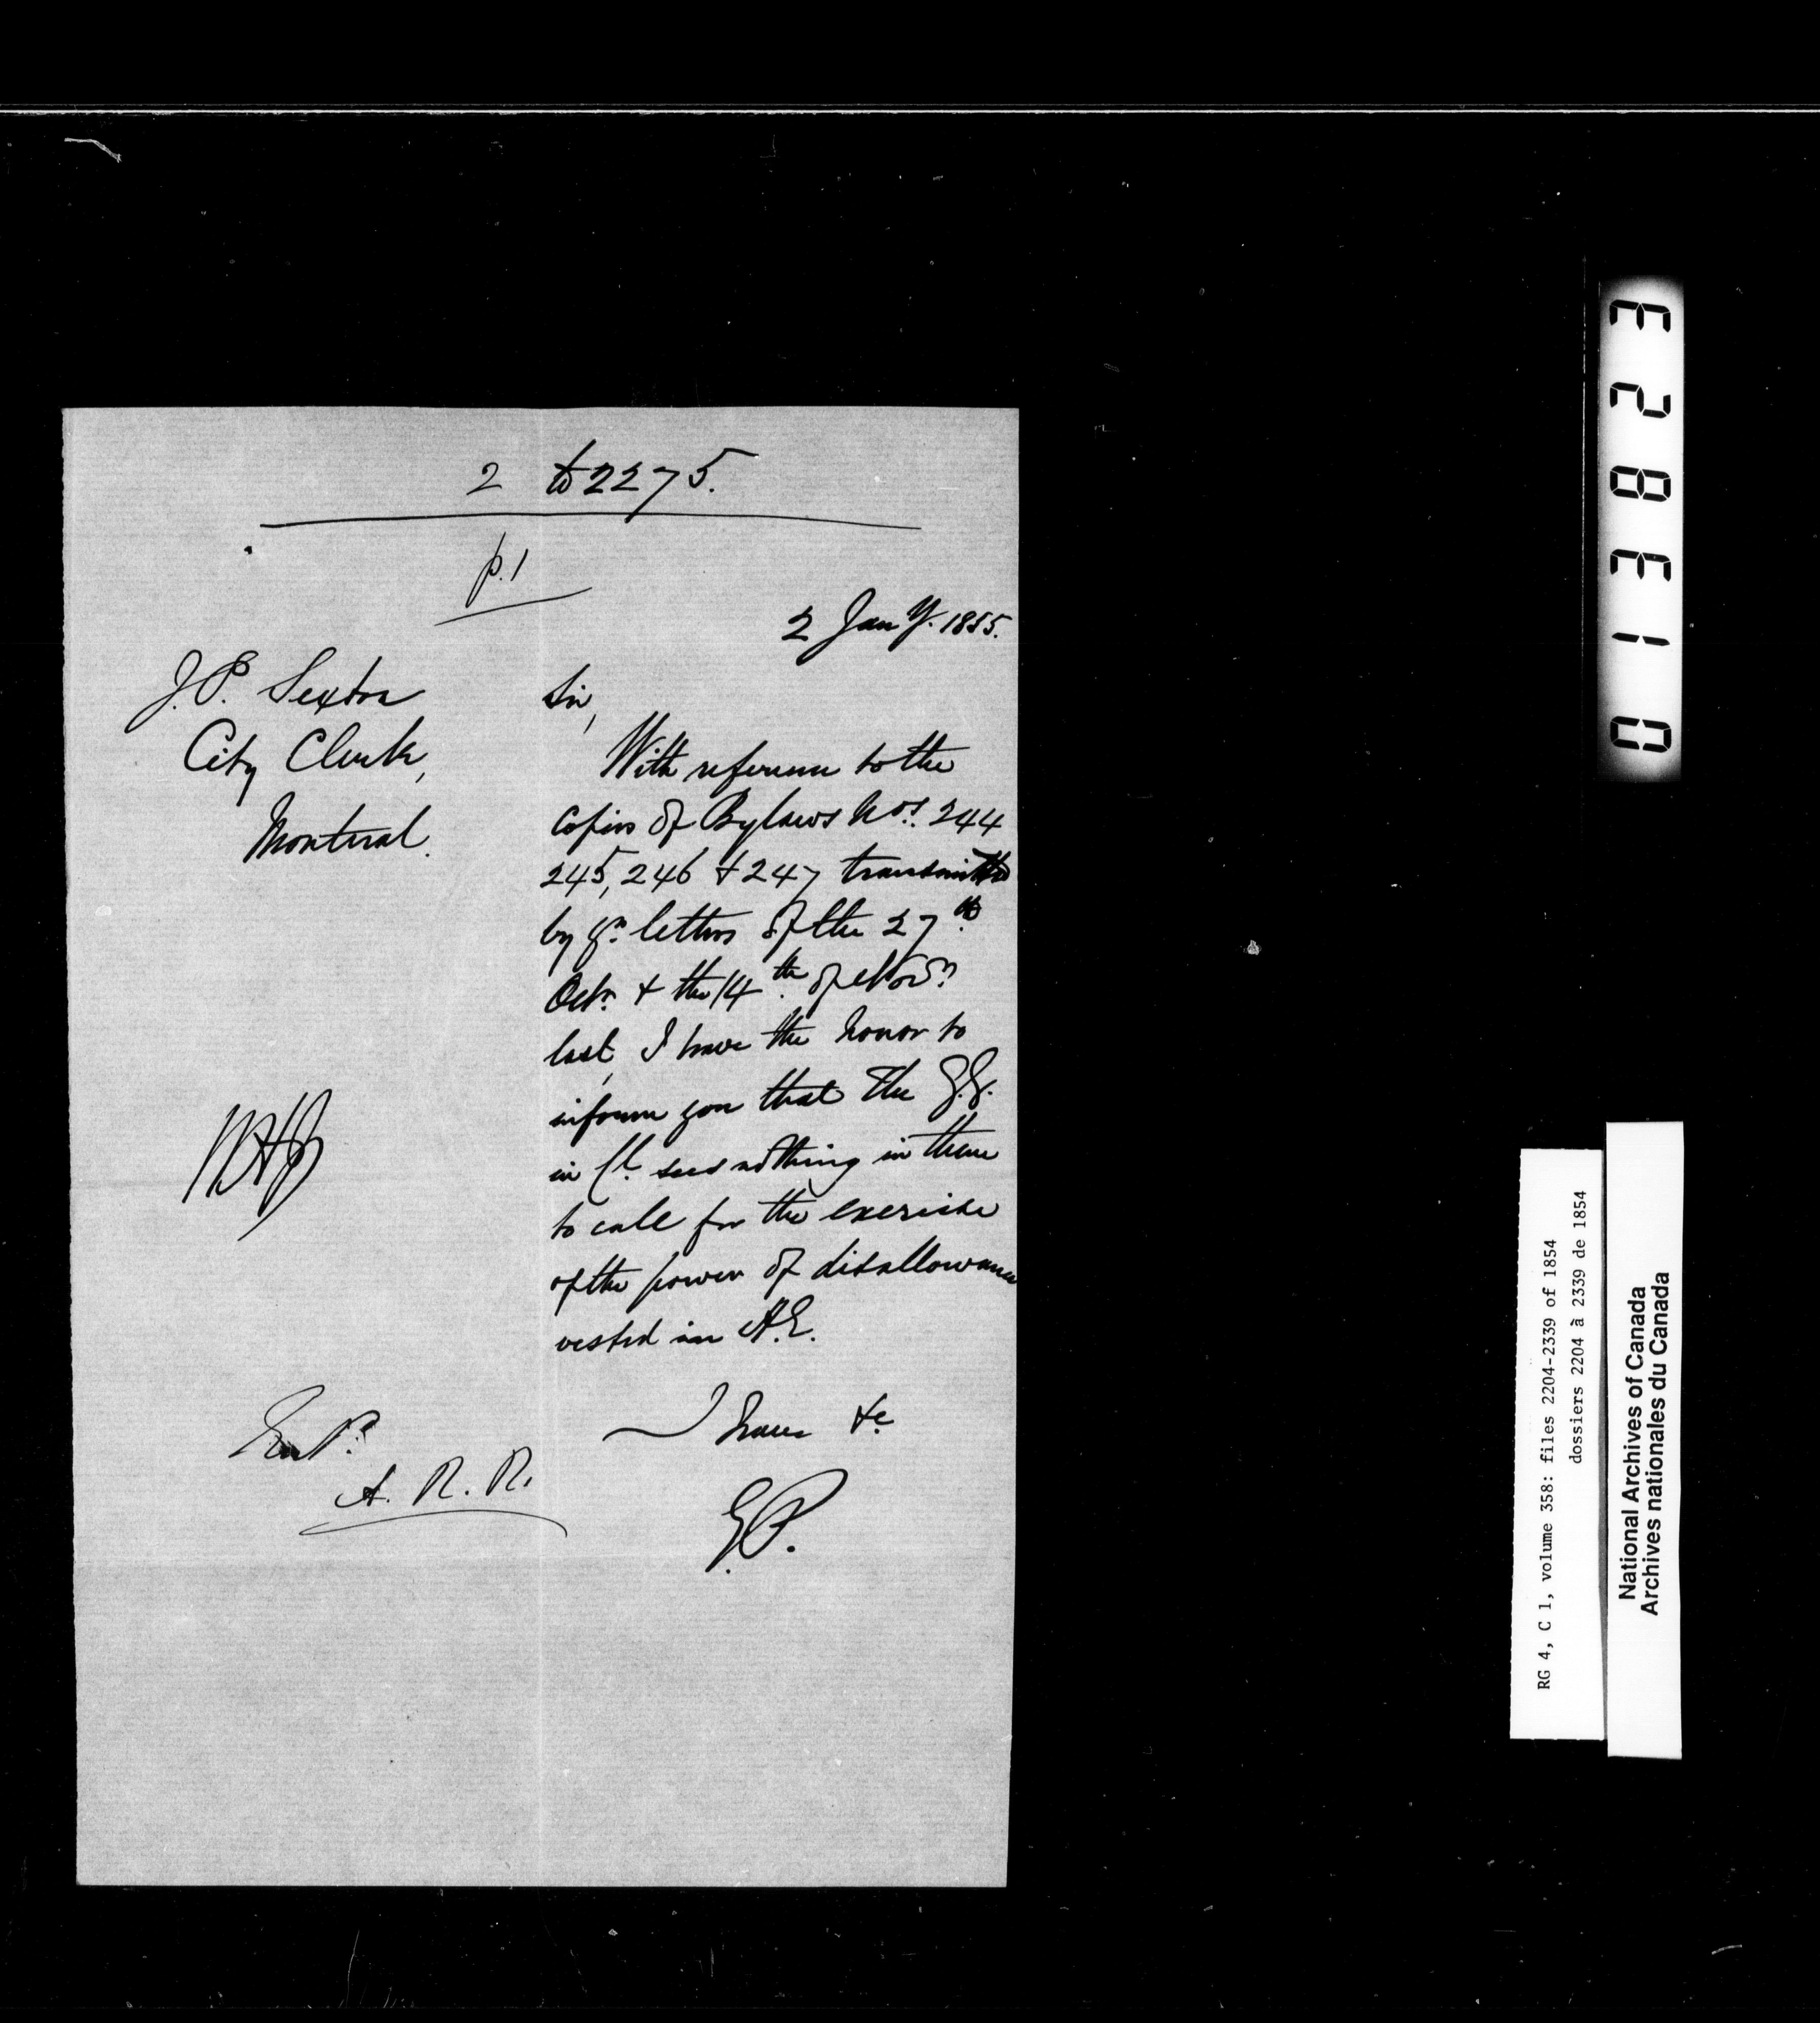 2 to 2275.
p. 1
2 Jany. 1855.
J.P. Sexton
City Clerk,
Montreal.
Sir,
With reference to the
copies of Bylaws Nos. 244
245, 246 & 247 transmitted
by yr. letters of the 27th
Octr. & the 14th of Novr.
last, I have the honor to
inform you that the G.G.
in Cl. sees nothing in them
to call for the exercise
of the power of disallowance
vested in H.E.
I have &c
G.P.
Entd.
A. R. R.
013823
RG 4, C 1, volume 358: files 2204-2339 of 1854
dossiers 2204 à 2339 de 1854
National Archives of Canada
Archives nationales du Canada